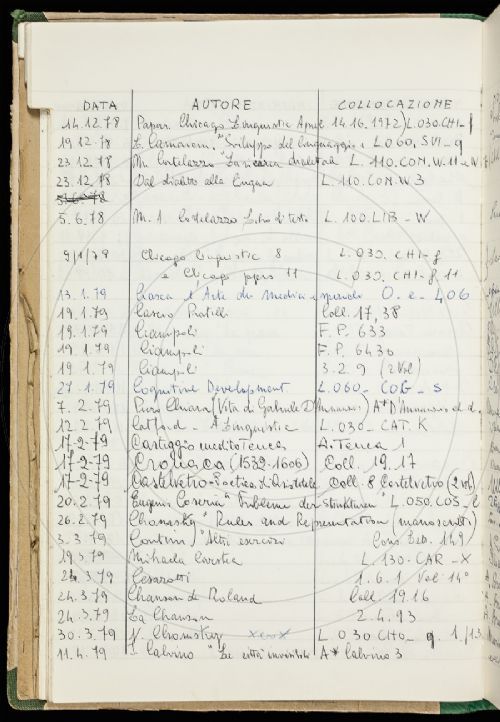 DATA AUTORE COLLOCAZIONE
14.12.78 Papers Chicago Linguistic April 14.16.1972) L.030.CHI-f
19.12.78 L. Camaioni "Sviluppo del linguaggio e L.060.SVI-g
23.12.78 M. Cortelazzo dialettale L.110.CON.W.11
23.12.78 Dal dialetto alla lingua L.110.CON.W3
5.6.78 M. A. Cortelazzo Libro di testo L.100.LIB-W
9/1/79 Chicago linguistic 8 L.030.CHI-f
e Chicago papers 11 L.030.CHI-f.11
13.1.79 L'Arte dei Medici e speziali O.e.406
19.1.79 Casero Pratelli Coll. 17,38
19.1.79 Ciampoli F.P. 633
19.1.79 Ciampoli F.P. 6430
19.1.79 Ciampoli 3.2.9 (2 Vol)
27.1.79 Cognitive Development L.060-COG-S
7.2.79 Piero Chiara (Vita di Gabriele D'Annunzio) A* D'Annunzio
12.2.79 Catford - A Linguistic L.030-CAT.K
17-2-79 Carteggio inedito Tenca A.Tenca 1
17-2-79 Cronaca (1532-1606) Coll. 19.17
17-2-79 Castelvetro-Poetica di Aristotele Coll. 8 Castelvetro (2 voll)
20.2.79 Eugenio Coseriu "Probleme der strukturen" L.050.COS
26.2.79 Chomsky "Rules and Representation (manoscritti)
3.3.79 Contini "Altri esercizi Cons. Deb. 149)
19.3.79 Mihaela L.130-CAR-X
24.3.79 Cesarotti 1.6.1 Vol 14°
24.3.79 Chanson de Roland Coll. 19.16
24.3.79 La Chanson 2.4.93
30.3.79 N. Chomsky xerox L 030 CHO- g.
11.4.79 I. Calvino "Le città invisibili A* Calvino 3